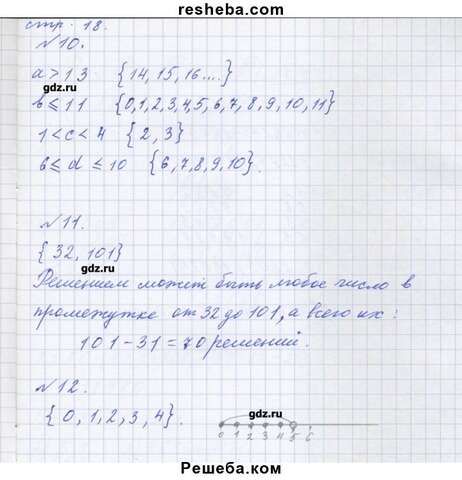 resheba.com
стр. 18.
№10.
a > 13 {14, 15, 16....}
гдз.ru
b ≤ 11 {0,1,2,3,4,5,6,7,8,9,10,11}
1 < c < 4 {2, 3}
6 ≤ d ≤ 10 {6,7,8,9,10}.
гдз.ru
№11.
{32, 101}
гдз.ru
Решением может быть любое число в
промежутке от 32 до 101, а всего их:
101 - 31 = 70 решений.
№12.
{0, 1, 2, 3, 4}.
гдз.ru
0 1 2 3 4 5 6
Решеба.ком